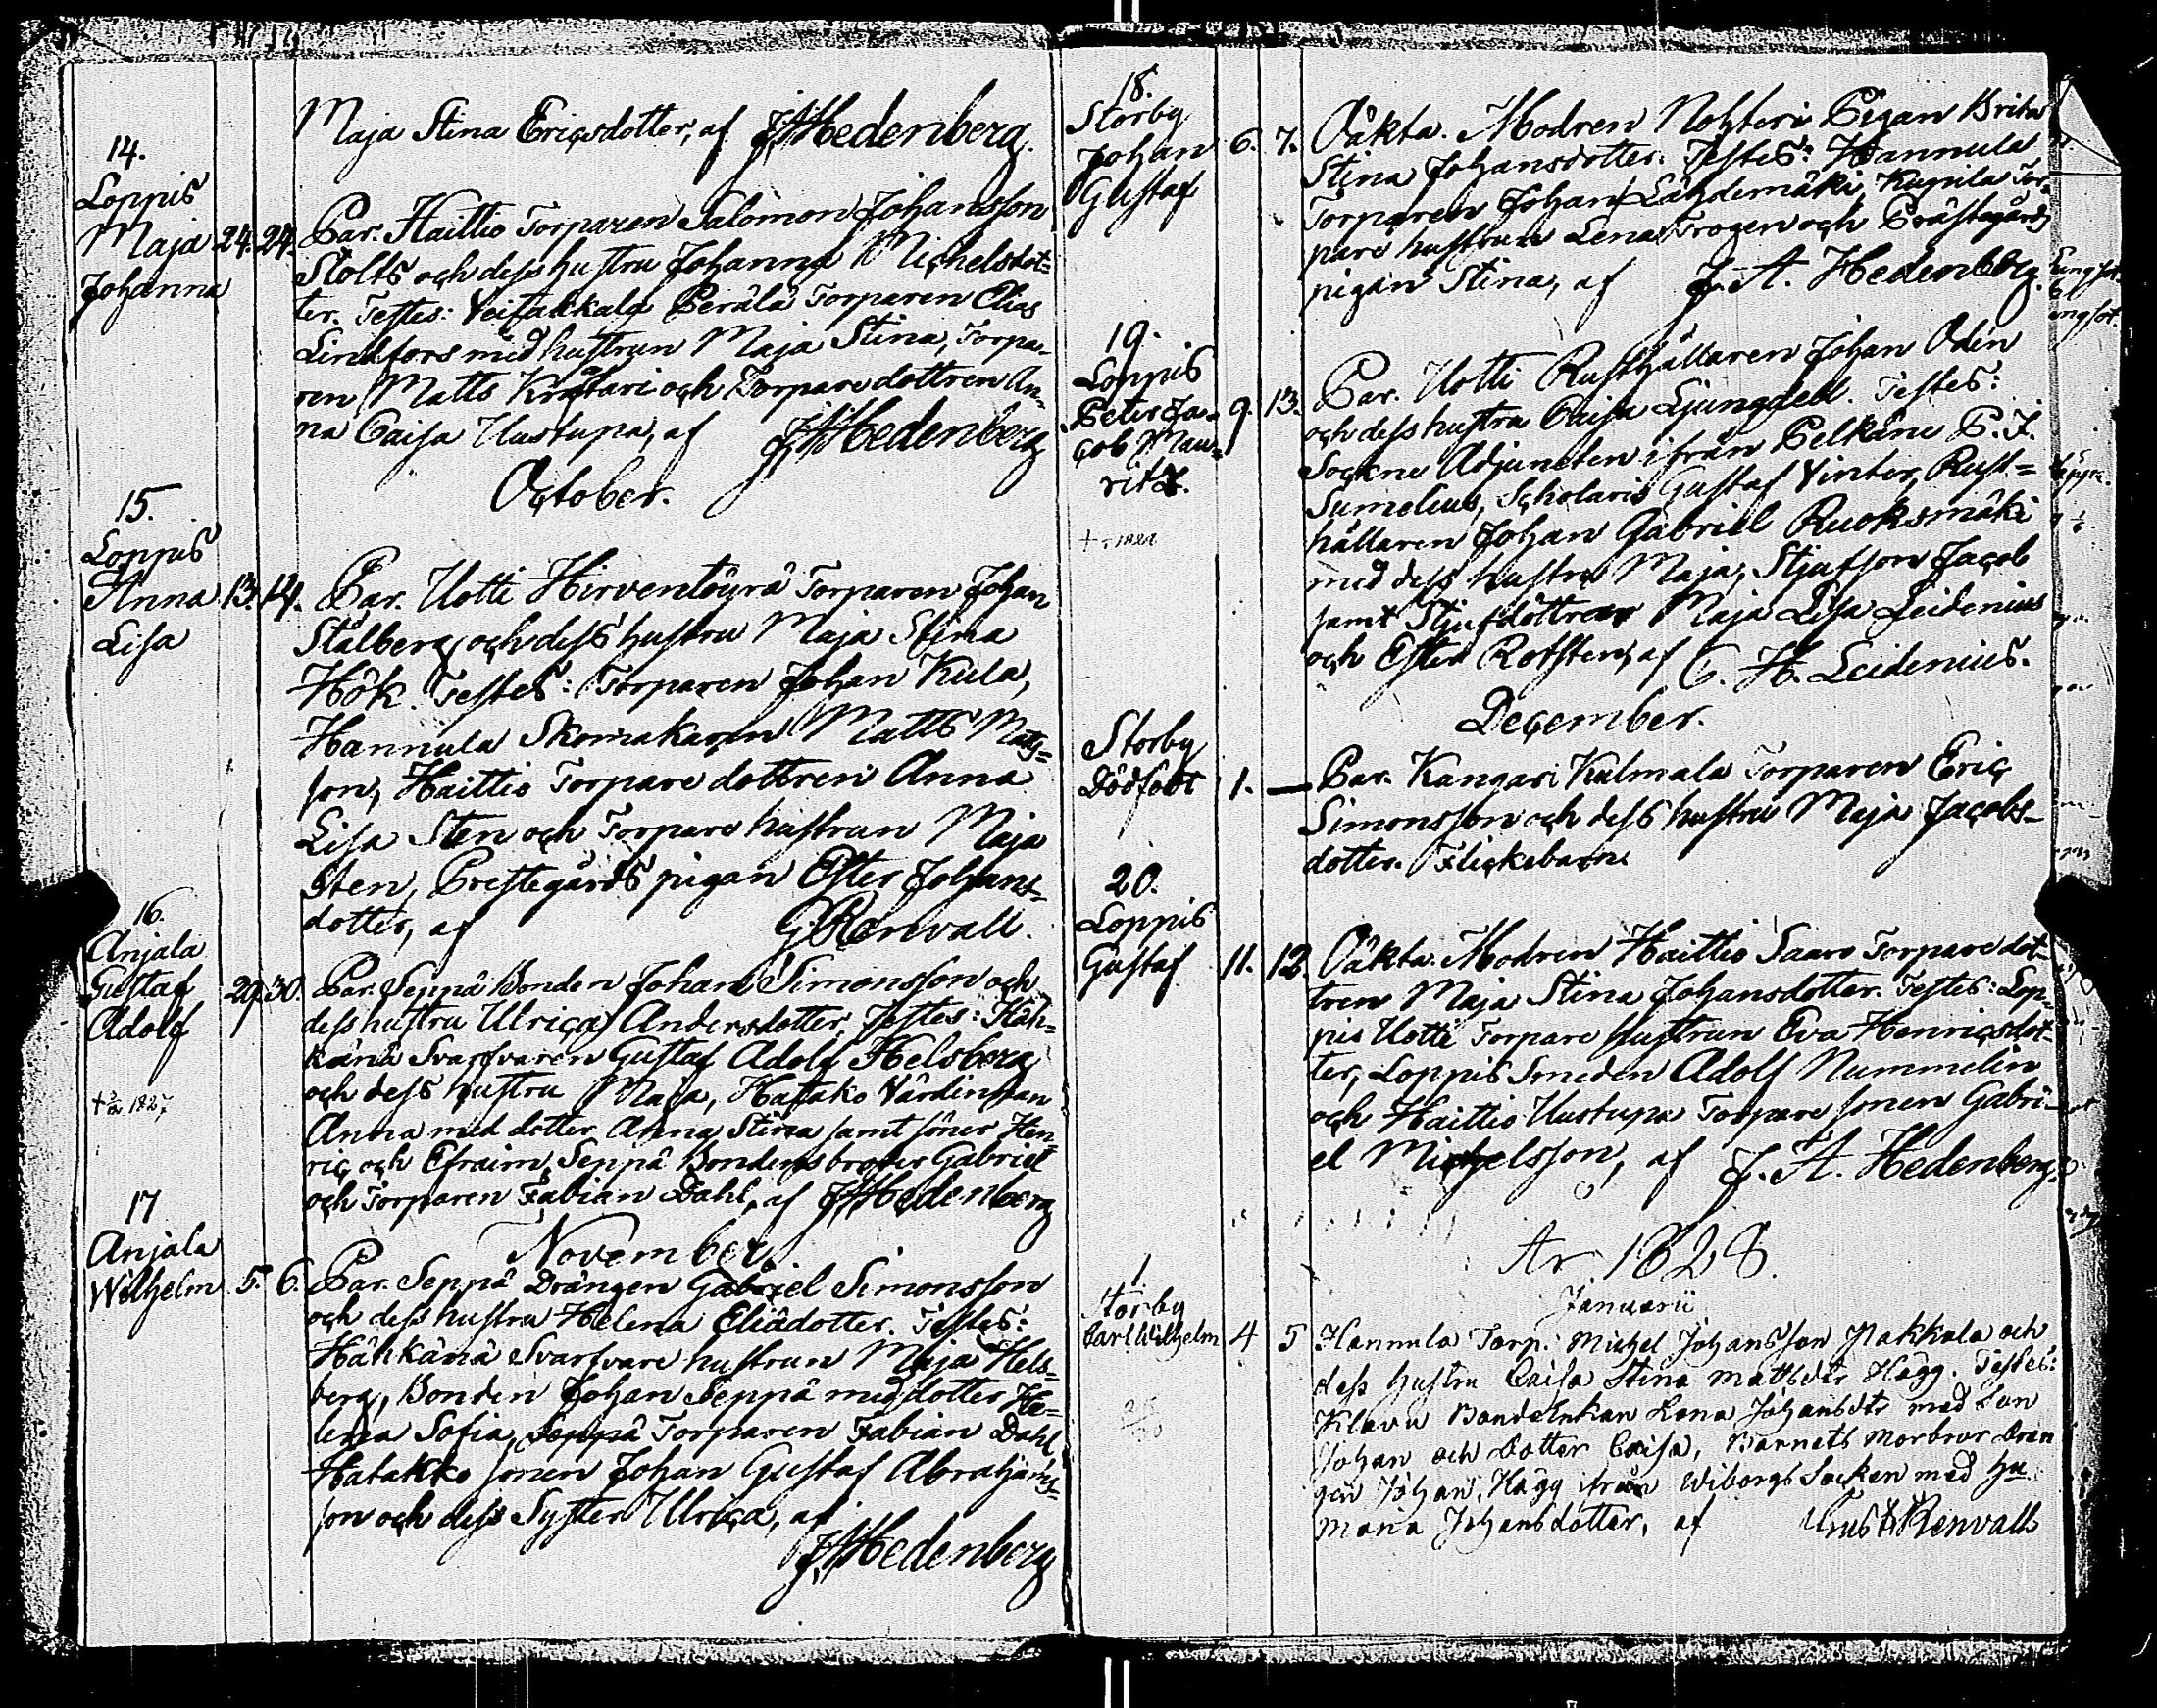 Maja Stina Ericsdotter, af JAHedenberg.
14.
Loppis
Maja 24. 24. Par. Haittio Torparen Salomon Johansson
Johanna
Stolts och dess hustru Johanna Michelsdot=
ter. Testes: Perälä Torparen Elias
Lindfors med hustrun Maja Stina, Torpa=
ren Matts och Torpare dottren An=
na Caisa Uustupa, af JAHedenberg
October.
15.
Loppis
Anna 13. 14. Par. Uotti Hirventöyrä Torparen Johan
Lisa
Stålberg och dess hustru Maja Stina
Hök. Testes: Torparen Johan Kula,
Hannula Skomakaren Matts Mats=
son, Haittio Torpare dottren Anna
Lisa Sten och Torpare hustrun Maja
Sten, Prestegårds pigan Ester Johans=
dotter, af GRenvall.
16.
Anjala
Gustaf 29. 30. Par. Seppä Bonden Johan Simonsson och
Adolf
dess hustru Ulrica Andersdotter, Testes: Häh=
känä Svarfvaren Gustaf Adolf Helsberg
och dess hustru Maja, Hatako Värdinnan
† 1827
Anna med dotter Anna Stina samt söner Hen=
ric och Efraim, Seppä Bondens broder Gabriel
och Torparen Fabian Dahl, af JAHedenberg
November.
17
Anjala
Wilhelm 5. 6. Par. Seppä Drängen Gabriel Simonsson
och dess hustru Helena Eliädotter. Testes:
Hähkänä Svarfvare hustrun Maja Hels=
berg, Bonden Johan Seppä med dotter He=
lena Sofia, Seppä Torparen Fabian Dahl,
Hatakko sonen Johan Gustaf Abrahams=
son och dess Syster Ulrica, af
JAHedenberg
18.
Storby
Johan 6. 7. Oäkta. Modren Nohteri Pigan Brita
Gustaf
Stina Johansdotter. Testes: Hannula
Torparen Johan Lähdemäki, Kupila Tor=
pare hustrun Lena Trogen och Prästegårds
pigan Stina, af J. A. Hedenberg.
19.
Loppis
Peter Ja= 9. 13. Par. Uotti Rusthållaren Johan Odin
cob Mau=
ritz.
och dess hustru Caisa Ljungdell. Testes:
Sockne Adjuncten ifrån Pelkäne P. J.
Sumelius, Scholaris Gustaf Vinter, Rust=
hållaren Johan Gabriel Ruoksmäki
med dess hustru Maja, Stjufson Jacob
samt Stjufdöttrar Maja Lisa Leidenius
och Ester Rotsten, af C. H. Leidenius.
December.
Storby
Dödfödt 1. — Par. Kangari Kulmala Torparen Eric
Simonsson och dess hustru Maja Jacobs=
dotter. Flickebarn
20.
Loppis
Gustaf 11. 12. Oäkta. Modren Haittio Saaro Torpare dot=
tren Maja Stina Johansdotter. Testes: Lop=
pis Uotti Torpare hustrun Eva Henricsdot=
ter, Loppis Smeden Adolf Nummelin
och Haittio Uustupa Torpare sonen Gabri=
el Michelsson, af J. A. Hedenberg.
Ar 1828.
Januarii
1.
Storby
Carl Wilhelm 4 5 Hannula Torp. Michel Johansson Nakkula och
dess hustru Caisa Stina Mattsdtr Hägg. Testes:
Klavu Bondenkan Lena Johansdtr med Son
Johan och Dotter Caisa, Barnets Morbror Drän
gen Johan Hägg ifrån Wiborgs Socken med hu
Maria Johansdotter, af Gust Renvall